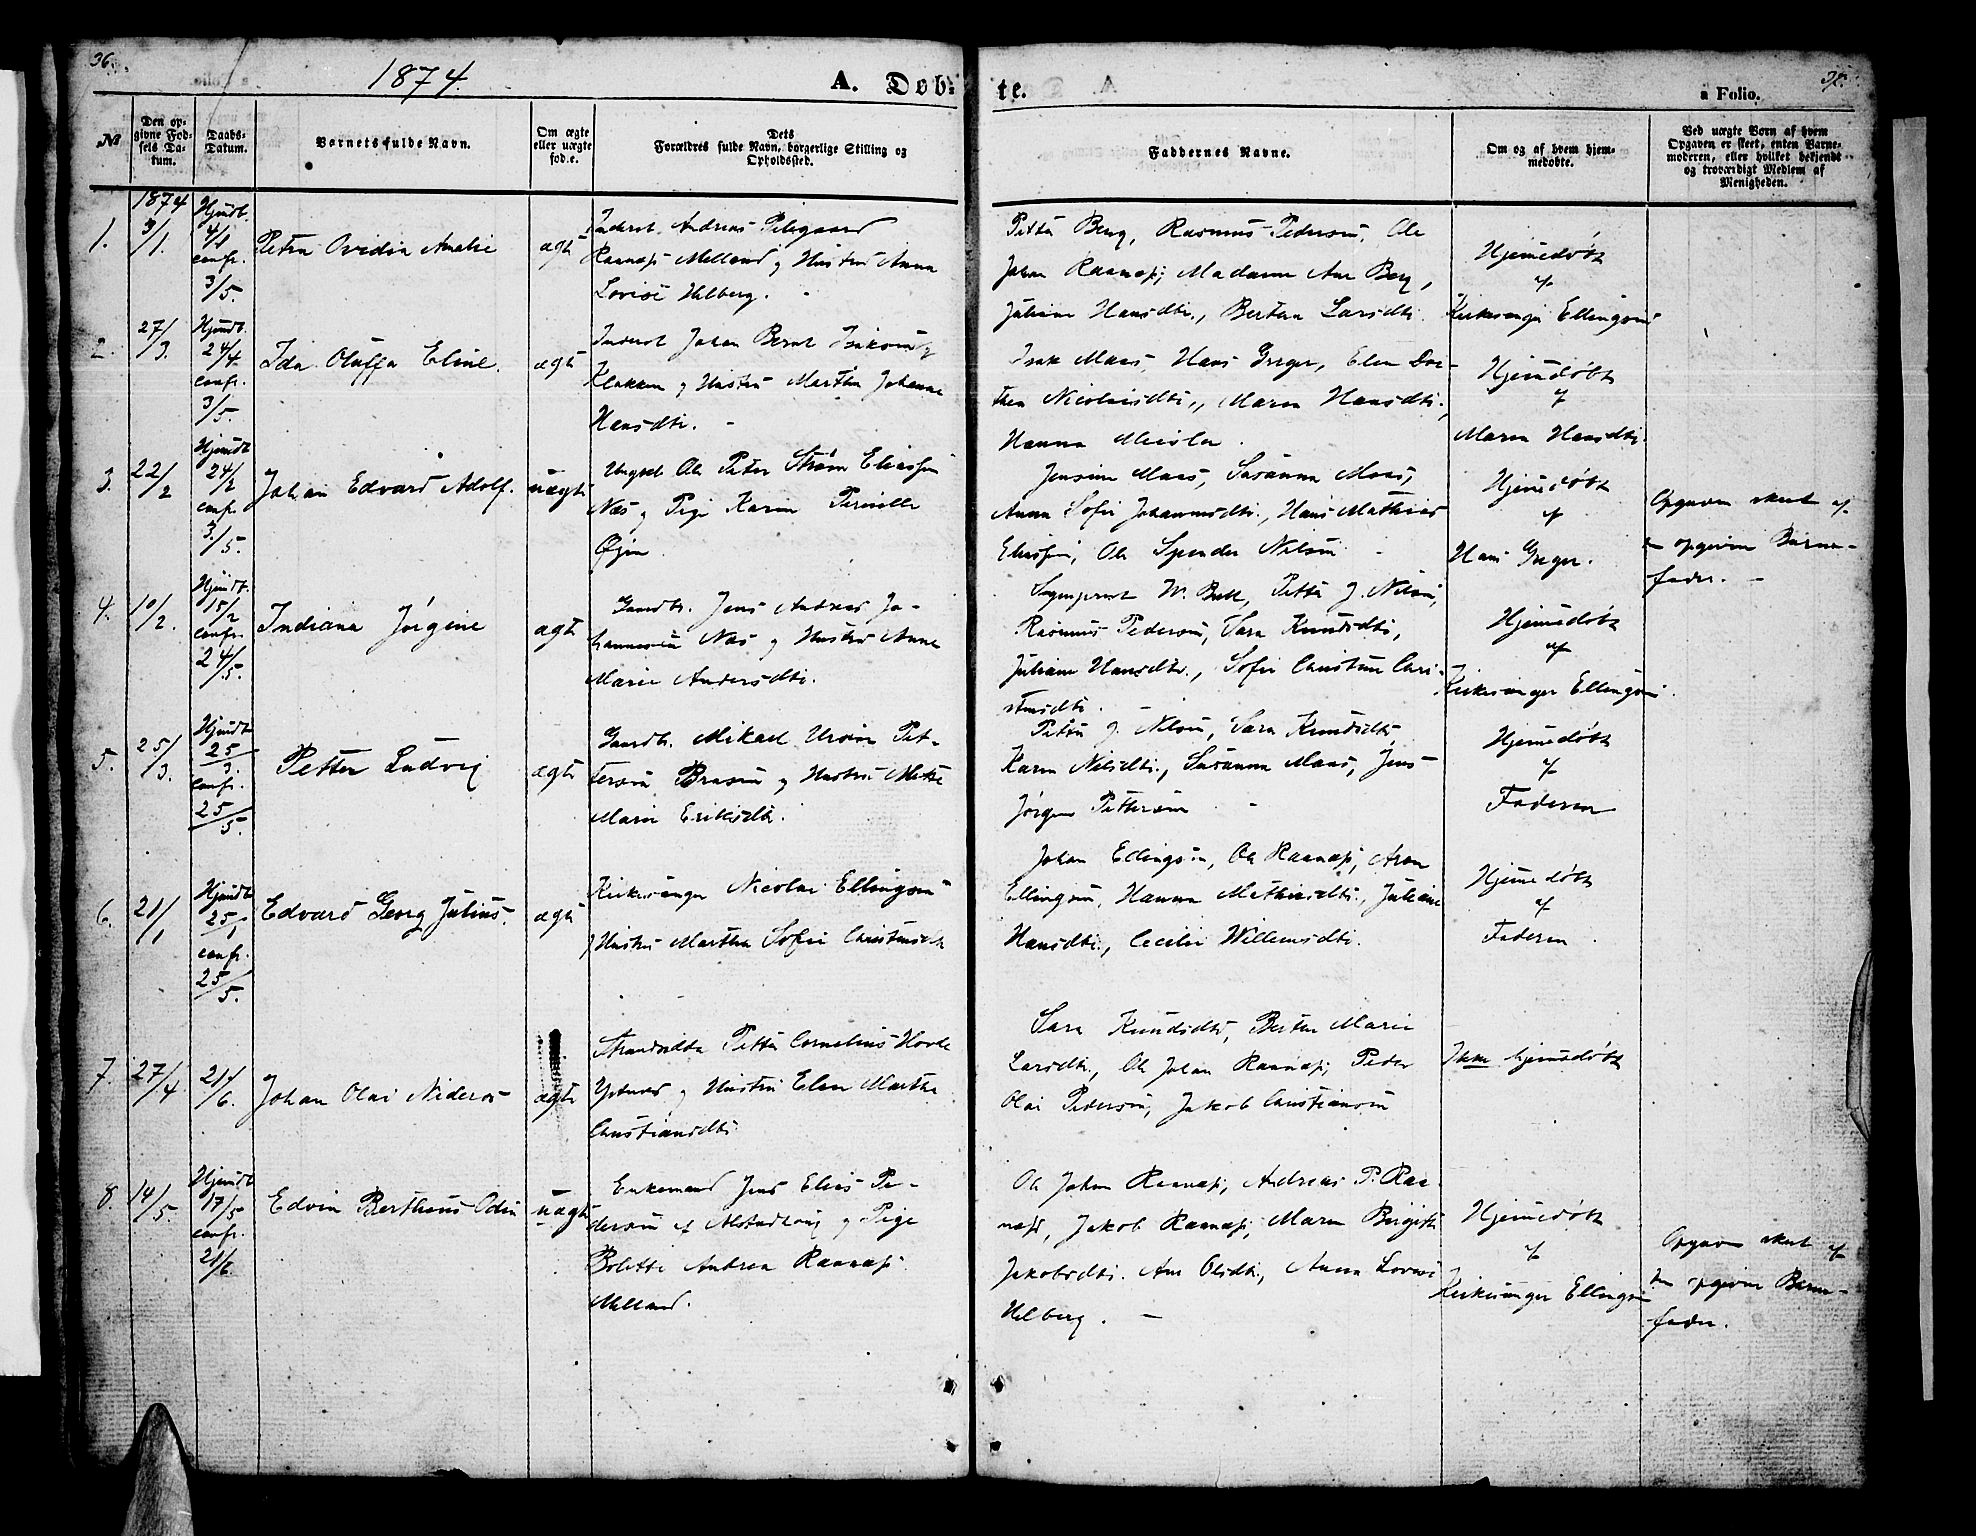 36.
1874.
A. Døb=
te.
a Folio.
№
Den op=
givne Fød=
sels Da=
tum.
Daabs=
Datum.
Barnets fulde Navn.
Om ægte
eller uægte
fød.e.
Dets
Forældres fulde Navn, borgerlige Stilling og
Opholdssted.
Faddernes Navne.
Om og af hvem hjem=
medøbte.
Ved uægte Børn af hvem
Opgaven er skeet, enten Barne=
moderen, eller hvilket bekjendt
og troværdigt Medlem af
Menigheden.
1.
1874
3/1.
Hjmdt.
4/1
conf.
3/5.
Petra Ovidia Amalie
ægte
Inderst. Andreas Pilegaard
Raanæs Melland og Hustru Anna
Lovise Helberg.
Petter Berg, Rasmus Pedersen, Ole
Johan Raanæs, Madame Ane Berg,
Juliane Hansdtr., Bertea Larsdtr.
Hjemmedøbt
af
Kirkesanger Ellingsen
2.
27/3.
Hjmdt.
24/4
conf.
3/5.
Ida Oluffa Eline.
ægte
Inderst Johan Bernt Isaksen
Klakken og Hustru Martha Johanna
Hansdtr.
Isak Maas, Hans Greger, Elen Dor-
thea Nicolaisdtr., Maren Hansdtr.,
Hanna
Hjemmedøbt
af
Maren Hansdtr.
3.
22/2
Hjemdt
24/2
conf.
3/5.
Johan Edvard Adolf.
uægte
Ungkl Ole Peter Strøm Eliassen
Næs og Pige Karen Pernille
Øjen
Jensine Maas, Susanna Maas,
Anna Sofie Johannesdtr., Hans Mathias
Eliassen, Ole Spender Nilsen
Hjemmedøbt
af
Hans Greger.
Opgaven skeet af
den opgivne Barne-
fader.
4.
10/2.
Hjmdt.
15/2
conf.
24/5.
Indiana Jørgine
ægte
Gaardbr. Jens Andreas Jo-
hannessen Næs og Hustru Anne
Marie Andersdtr.
Sogneprest W. Bull, Petter J. Nilsen,
Rasmus Pedersen, Sara Knudsdtr.,
Juliane Hansdtr., Sofie Christine Chri-
stensdtr.
Hjemmedøbt
af
Kirkesanger Ellingsen.
5.
25/3.
Hjmdt
25/3.
conf.
25/5.
Petter Ludvig
ægte
Gaardbr. Mikael Ursin Pet-
tersen Brasøen og Hustru Mette
Marie Eriksdtr.
Petter J. Nilsen, Sara Knudsdtr.
Karen Nilsdtr., Susanna Maas, Jens
Jørgen Pettersen
Hjemmedøbt
af
Faderen
6.
21/1
Hjmdt
25/1
conf.
25/5.
Edvard Georg Julius.
ægte
Kirkesanger Nicolai Ellingsen
og Hustru Martha Sofie Christensdtr
Johan Ellingsen, Ole Raanæs, Aron
Ellingsen, Hanna Mathiasdtr., Juliane
Hansdtr., Cecilie Willemsdtr.
Hjemmedøbt
af
Faderen
7.
27/4.
21/6.
Johan Olai Nideros
ægte
Strandsidder Petter Cornelius Hovde
Ystnes og Hustru Elen Martha
Christiansdtr.
Sara Knudsdtr., Bertea Marie
Larsdtr., Ole Johan Raanæs, Peder
Olai Pedersen, Jakob Christiansen
Ikke hjemmedøbt
8.
14/5.
Hjmdt
17/5
conf.
21/6.
Edvin Bertheus Odin
uægte
Enkemand Jens Elias Pe-
dersen af Alstadhoug og Pige
Bolette Andrea Raanæs
Melland.
Ole Johan Raanæs, Andreas P. Raa-
næs, Jakob Raanæs, Maren Birgitte
Jakobsdtr. Ane Olsdtr., Anna Lovise
Helberg.
Hjemmedøbt
af
Kirkesanger Ellingsen
Opgaven skeet af
den opgivne Barne-
fader.